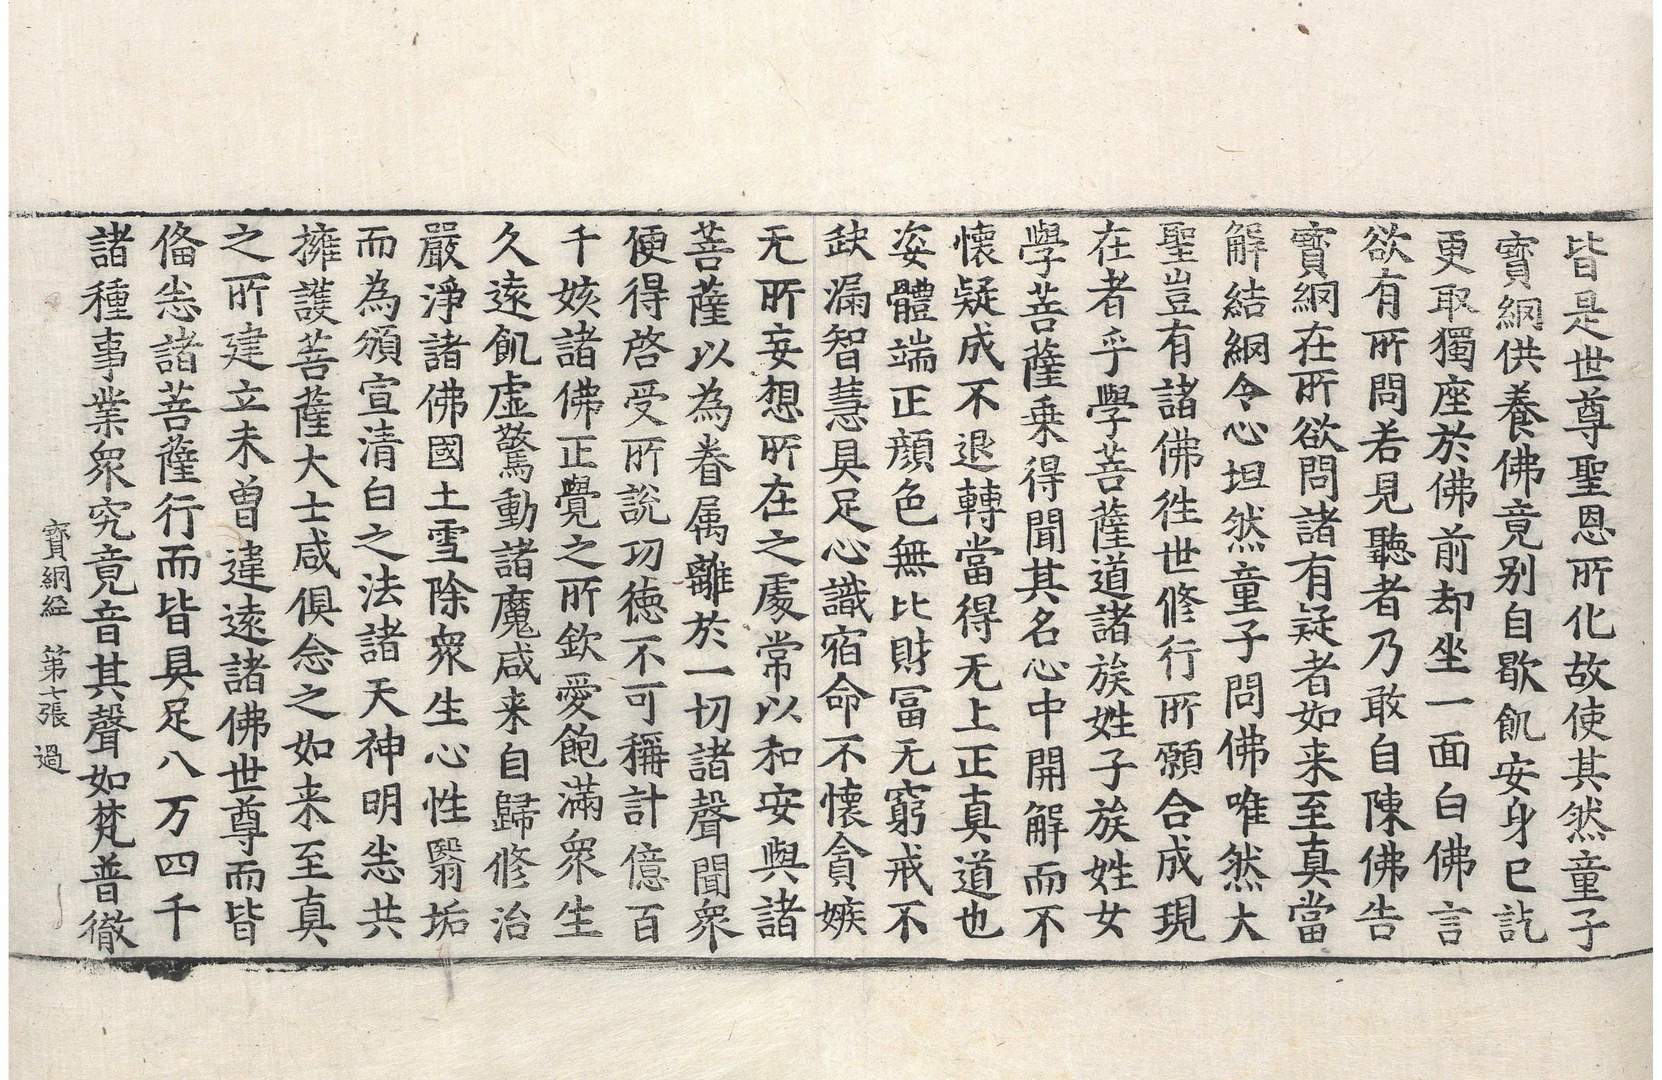 皆是世尊聖恩所化故使其然童子
寳網供養佛竟别自歇飢安身已訖
更取獨座於佛前却坐一面白佛言
欲有所問若見聽者乃敢自陳佛告
寳網在所欲問諸有疑者如来至真當
解結網令心坦然童子問佛唯然大
聖豈有諸佛徃世修行所願合成現
在者乎學菩薩道諸族姓子族姓女
學菩薩乗得聞其名心中開解而不
懷疑成不退轉當得无上正真道也
姿體端正顔色無比財冨无窮戒不
缺漏智慧具足心識宿命不懷貪嫉
无所妄想所在之處常以和安與諸
菩薩以為眷属離於一切諸聲聞衆
便得啓受所説功徳不可稱計億百
千姟諸佛正覺之所欽愛飽滿衆生
久遠飢虚驚動諸魔咸来自歸修治
嚴淨諸佛國土雪除衆生心性翳垢
而為頒宣清白之法諸天神明悉共
擁護菩薩大士咸俱念之如来至真
之所建立未曾違遠諸佛世尊而皆
俻悉諸菩薩行而皆具足八万四千
諸種事業衆究竟音其聲如梵普徹
寳網経 第七張 過